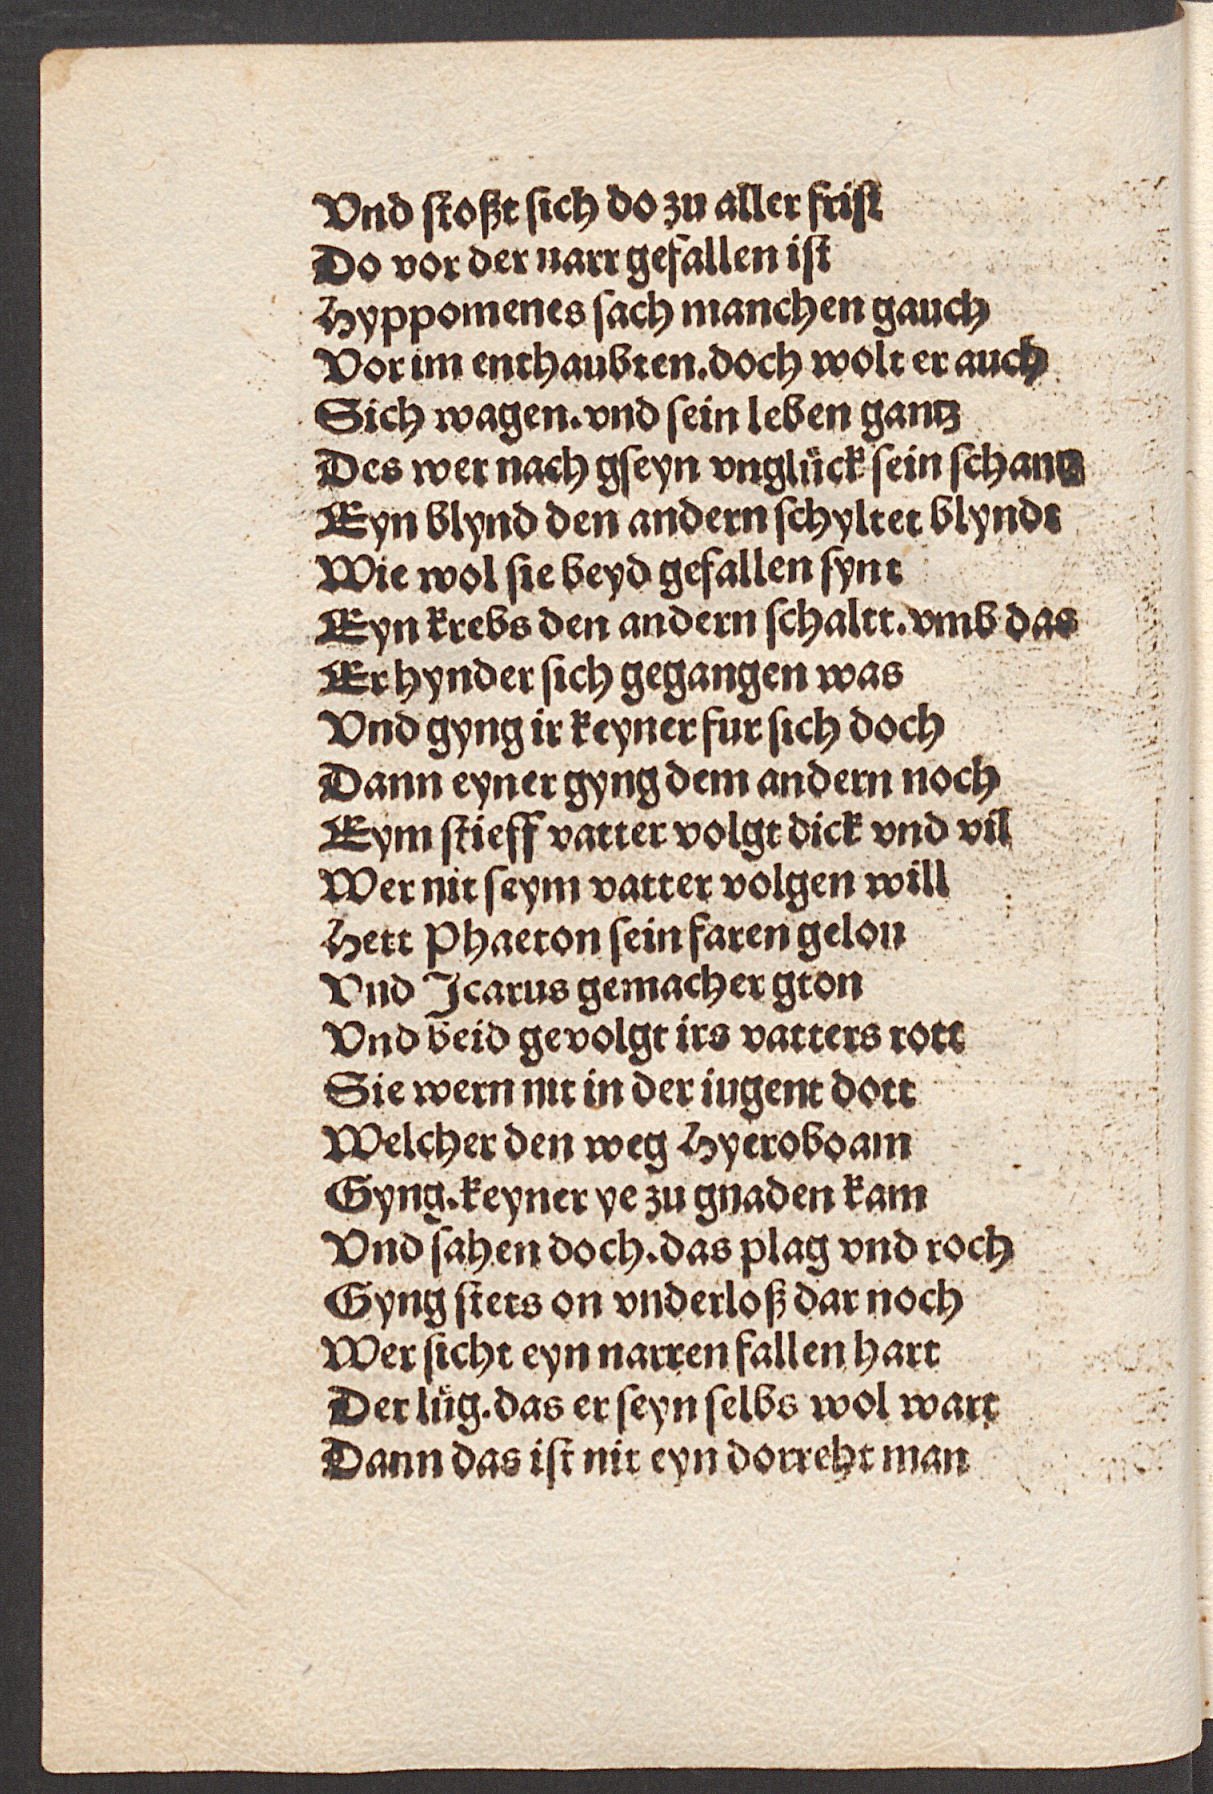 Vnd stoßt sich do zu aller frist
Do vor der narr gefallen ist
Hyppomenes sach manchen gauch
Vor im enthaubten.doch wolt er auch
Sich wagen.vnd sein leben gantz
Des wer nach gseyn vnglück sein schantz
Eyn blynd den andern schyltet blyndt
Wie wol sie beyd gefallen synt
Eyn krebs den andern schaltt.vmb das
Er hynder sich gegangen was
Vnd gyng ir keyner fur sich doch
Dann eyner gyng dem andern noch
Eym stieff vatter volgt dick vnd vil
Wer nit seym vatter volgen will
Hett Phaeton sein faren gelon
Vnd Icarus gemacher gton
Vnd beid gevolgt irs vatters rott
Sie wern nit in der iugent dott
Welcher den weg Hyeroboam
Gyng.keyner ye zu gnaden kam
Vnd sahen doch.das plag vnd roch
Gyng stets on vnderloß dar noch
Wer sicht eyn narren fallen hart
Der lüg.das er seyn selbs wol wart
Dann das ist nit eyn dorreht man